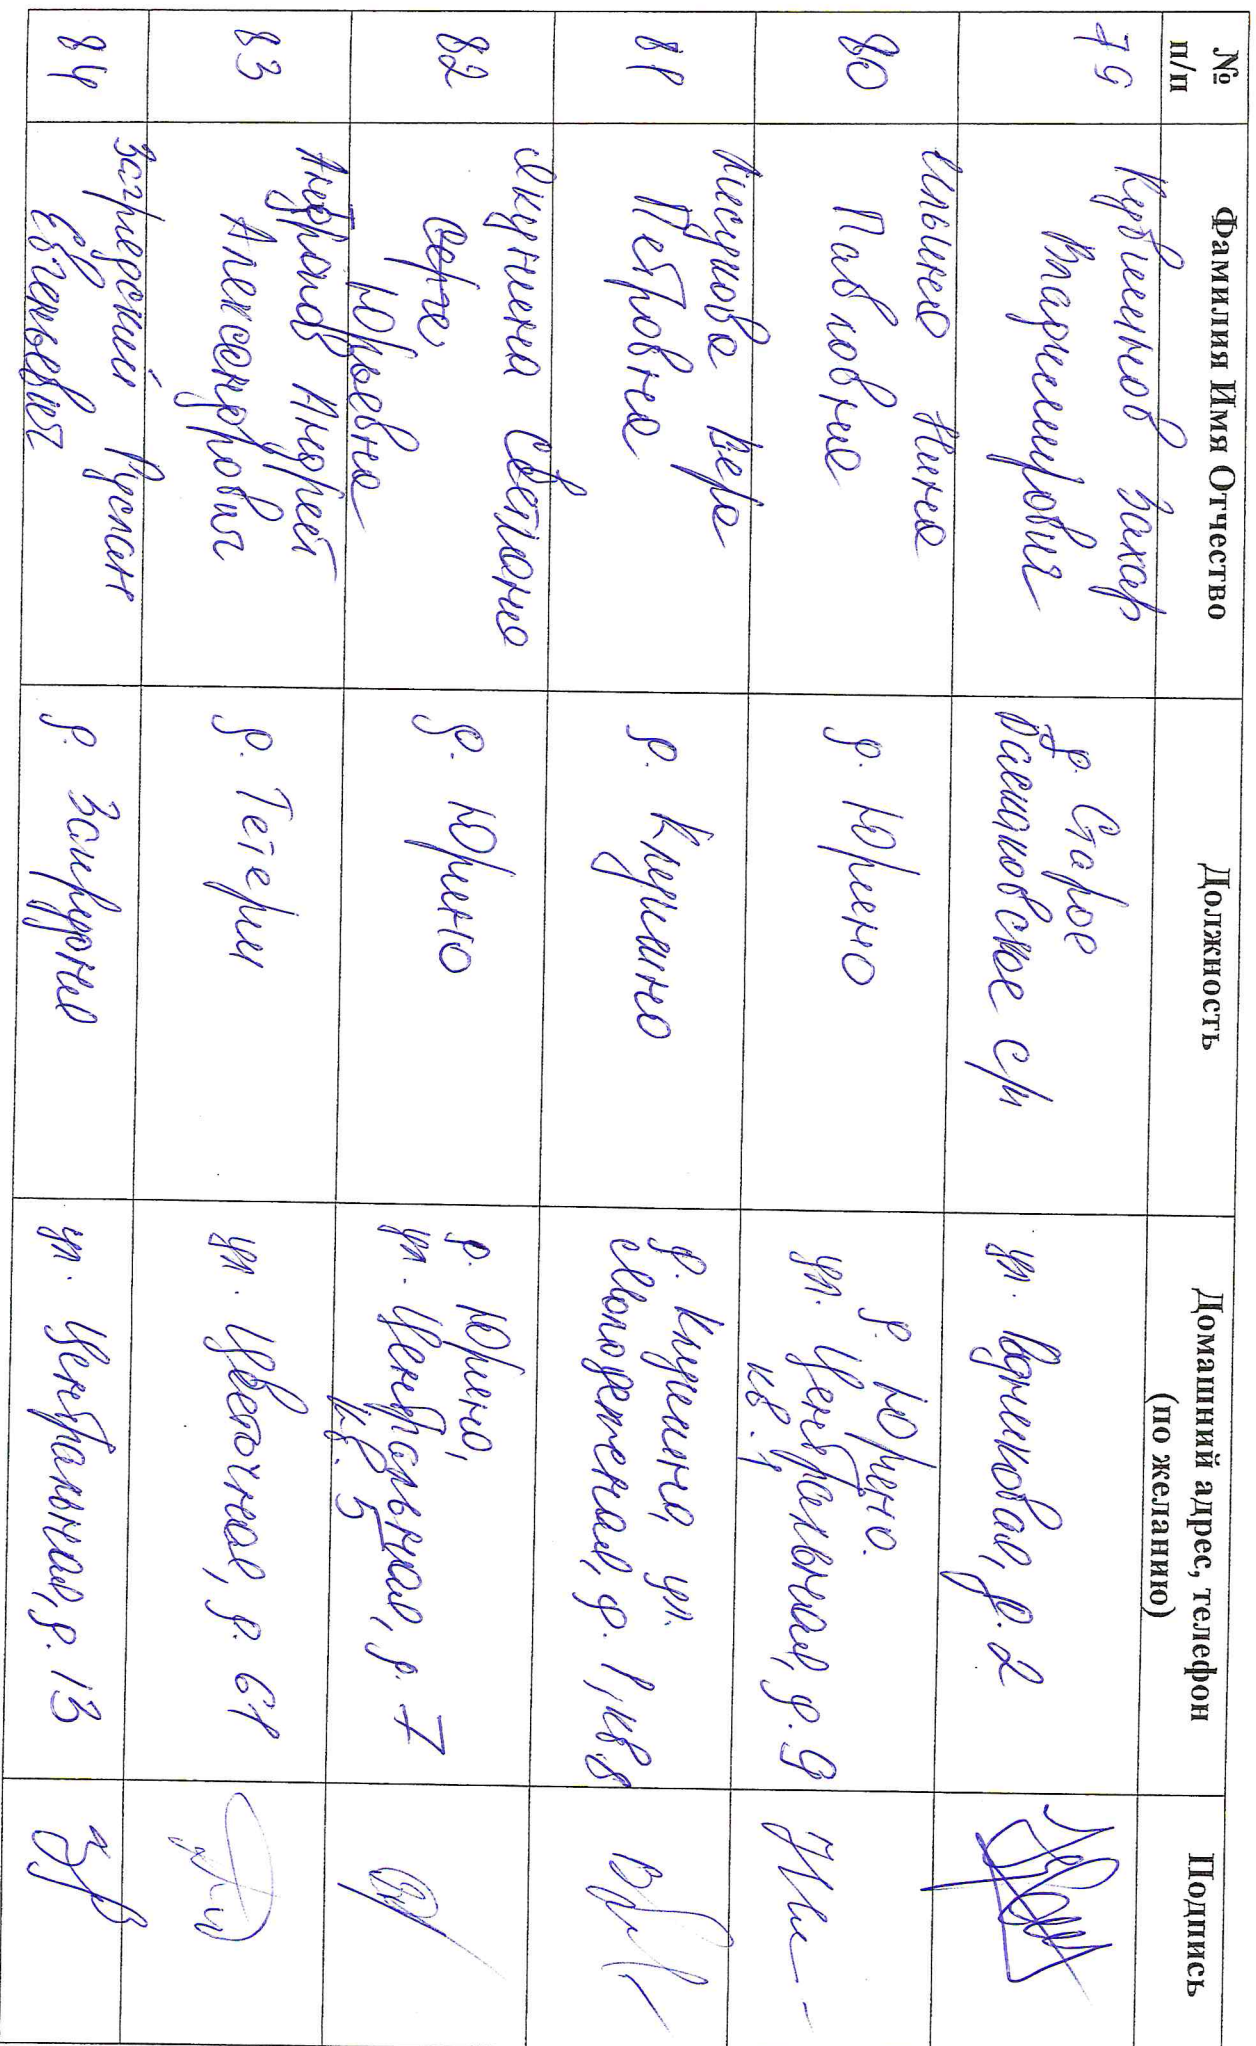 № п/п
Фамилия Имя Отчество
Должность
Домашний адрес, телефон (по желанию)
Подпись
79
Кувшинов Захар
Владимирович
д. Старое
с/п
ул. д. 2
80
Ильина Нина
Павловна
д. Юрино
д. Юрино.
ул. Центральная, д. 9
кв. 4
81
Вера
Петровна
д. Клушино
д. Клушино, ул.
Молодежная, д. 1, кв 8
82
Якунина Светлана
Серге
Юрьевна
д. Юрино
д. Юрино,
ул. Центральная, д. 7
кв. 5
83
Андрей
Александрович
д. Тетери
ул. Цветочная, д. 61
84
Загредский Руслан
Евгеньевич
д. Запрудня
ул. Центральная, д. 13